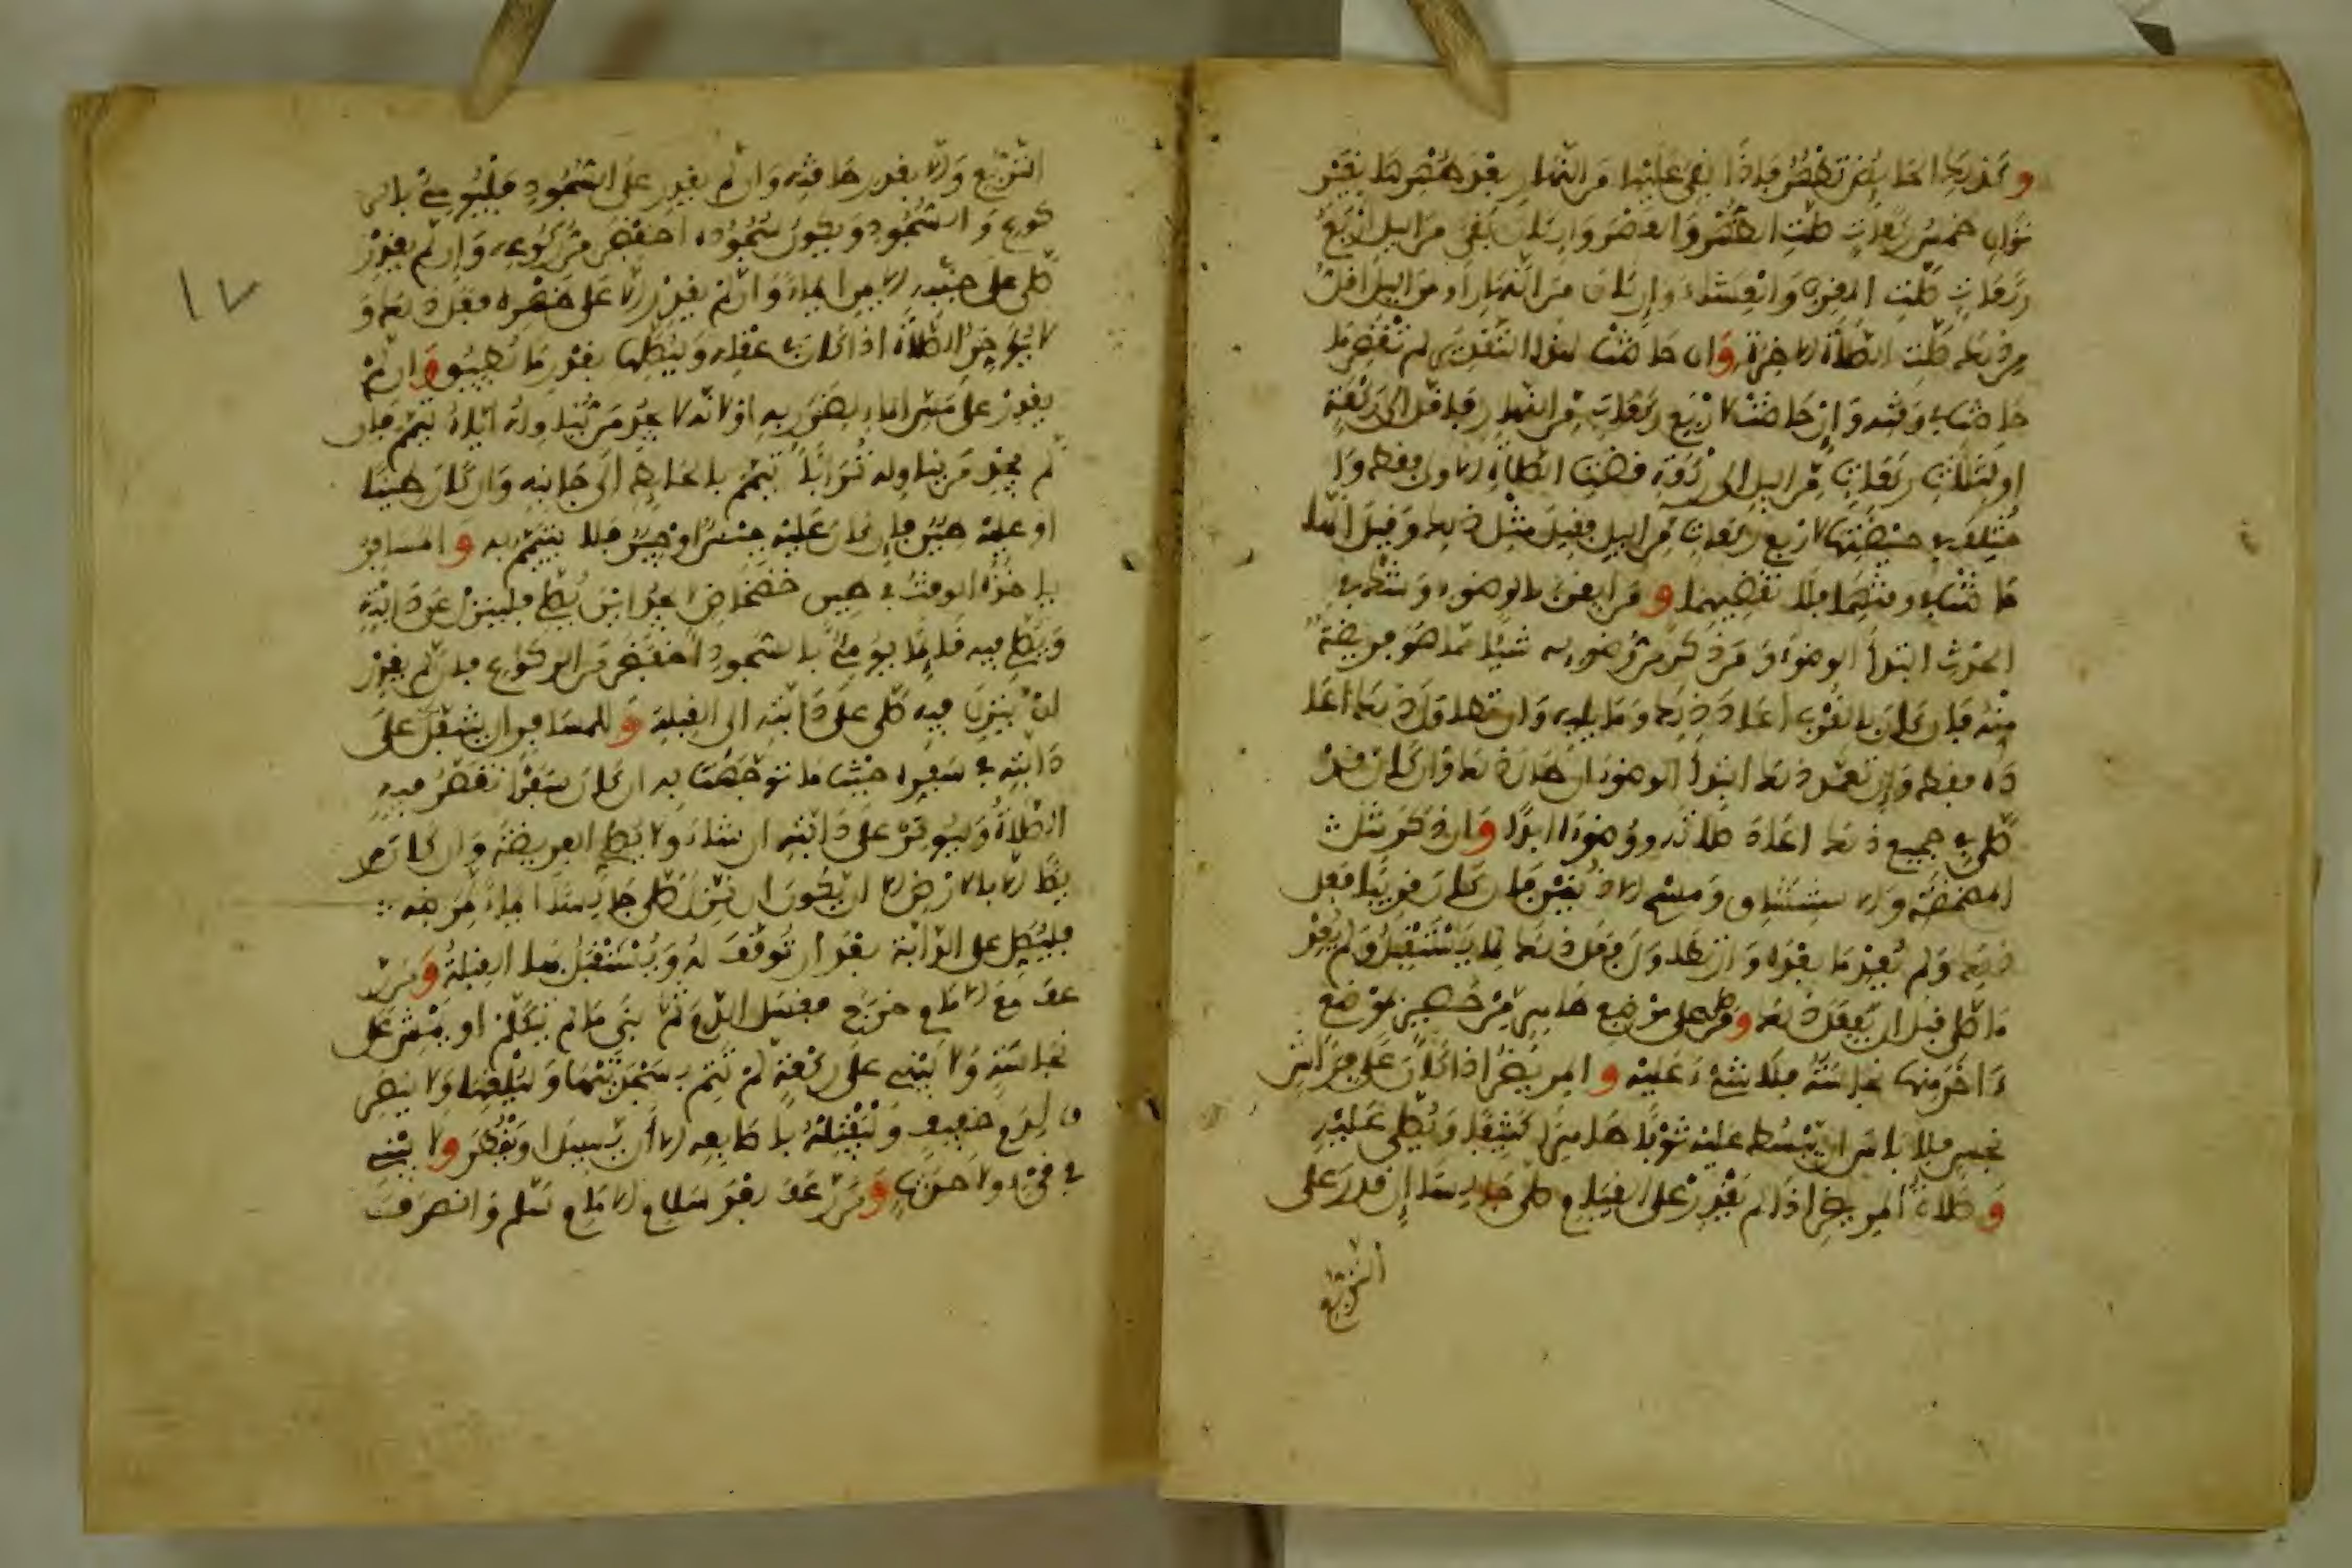 و كذلك الحايض تطهر فاذا بقي عليها من النهار بعد طهرها بغير
توان خمس ركعات صلت الظهر والعصر وان كان بقي من اليل اربع
ركعات صلت المغرب والعشاء وان كان من النهار او من اليل اقل
من ذلك صلت الصلاة الاخرة وان حاضت لهذا التقدير لم تقض ما
حاضت في وقته وان حاضت لاربع ركعات من النهار فاقل الى ركعة
او لثلاث ركعات من اليل الى ركعة قضت الصلاة الاولى فقط و
اختلف في حيضتها لاربع ركعات من اليل فقيل مثل ذلك وقيل انها
حاضت في وقتهما فلا تقضيهما و من ايقن بالوضوء وشك في
الحدث ابتدأ الوضوء و من ذكر من وضوءه شيئا مما هو فريضة
منه فان كان بالقرب اعاد ذلك وما يليه وان تطاول ذلك اعا
ده فقط وان تعمد ذلك ابتدأ الوضوء ان طال ذلك وان كان قد
صلى في جميع ذلك اعاد صلاته ووضوءه ابدا وان ذكر مثل
المضمضة والاستنشاق ومسح الاذنين فان كان قريبا فعل
ذلك ولم يعد ما بعده وان تطاول فعل ذلك لما يستقبل ولم يعد
ما صلى قبل ان يفعل ذلك ومن صلى على موضع طاهر من حصير بموضع
ءاخر منها نجاسة فلا شيء عليه و المريض اذا كان على فراش
نجس فلا باس ان يبسط عليه ثوبا طاهرا كثيفا ويصلي عليه
و صلاة المريض اذا لم يقدر على القيام صلى جالسا ان قدر على
التربع
١٧
التربع والا بقدر طاقته وان لم يقدر على السجود فليومئ بالر
كوع والسجود ويكون سجوده اخفض من ركوعه وان لم يقدر
صلى على جنبه الايمن ايماء وان لم يقدر الا على ظهره فعل ذلك و
لا يؤخر الصلاة اذا كان في عقله وليصلها بقدر ما يطيق وان لم
يقدر على مس الماء لضرر به او لانه لا يجد من يناوله اياه تيمم فان
لم يجد من يناوله ترابا تيمم بالحايط الى جانبه وان كان طينا
او عليه طين فان كان عليه جص او جير فلا يتيمم به و المسافر
ياخذه الوقت في طين خضخاض لا يجد اين يصلي فلينزل عن دابته
ويصلي فيه قايما يومئ بالسجود اخفض من الركوع فان لم يقدر
ان ينزل فيه صلى على دابته الى القبلة و للمسافر ان يتنفل على
دابته في سفره حيث ما توجهت به ان كان سفرا تقصر فيه
الصلاة وليوتر على دابته ان شاء ولا يصلي الفريضة وان كان مر
يضا الا بالارض الا ان يكون ان نزل صلى جالسا ايماء لمرضه
فليصل على الدابة بعد ان توقف له ويستقبل بها القبلة و من ر
عف مع الامام خرج فغسل الدم ثم بنى ما لم يتكلم او يمش على
نجاسة ولا يبني على ركعة لم تتم بسجدتيها وليلغها ولا ينصر
ف لدم خفيف وليفتله باصابعه الا ان يسيل او يقطر ولا يبني
في قيء ولا حدث ومن رعف بعد سلام الامام سلم وانصرف